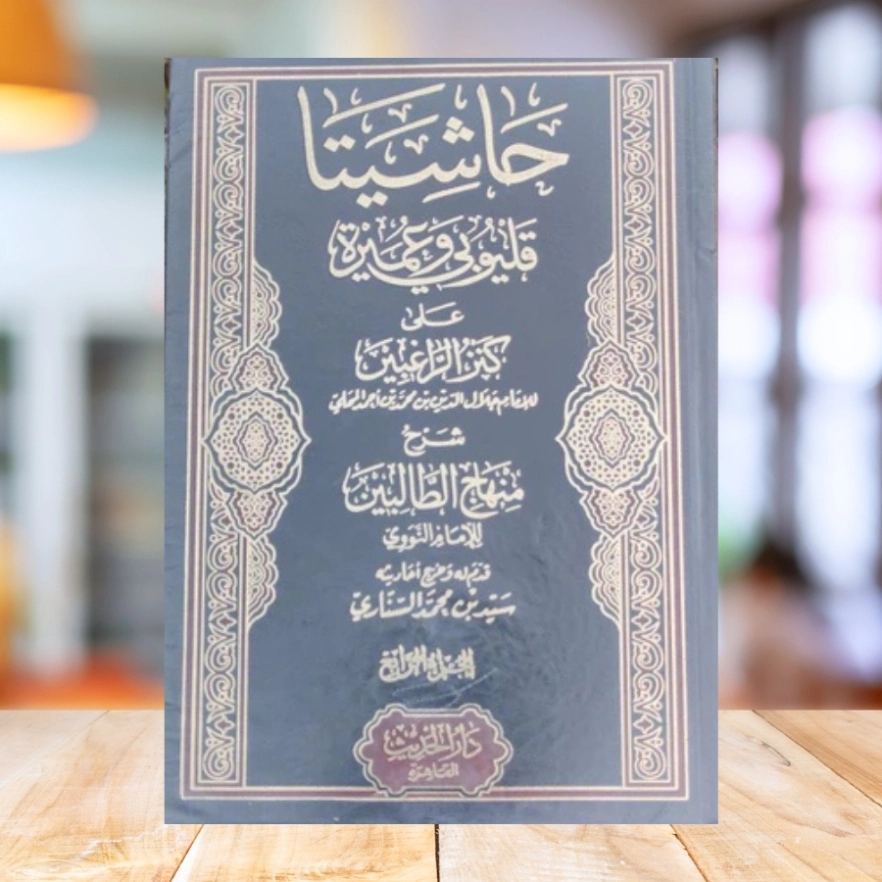 حَاشِيَتَا
قليوبي وعُمَيْرة
عَلَى
كَنْزُ الرَّاغِبِين
للإمام جلال الدين بن محمد بن أحمد المحلي
شَرْح
مِنْهَاج الطَّالِبِين
للإمام النَّوَوِي
قدم له وخرج أحاديثه
سَيّد بْن محمَّد السنَّاري
المجلد الرابع
دَارُ الحَدِيث
القاهرة